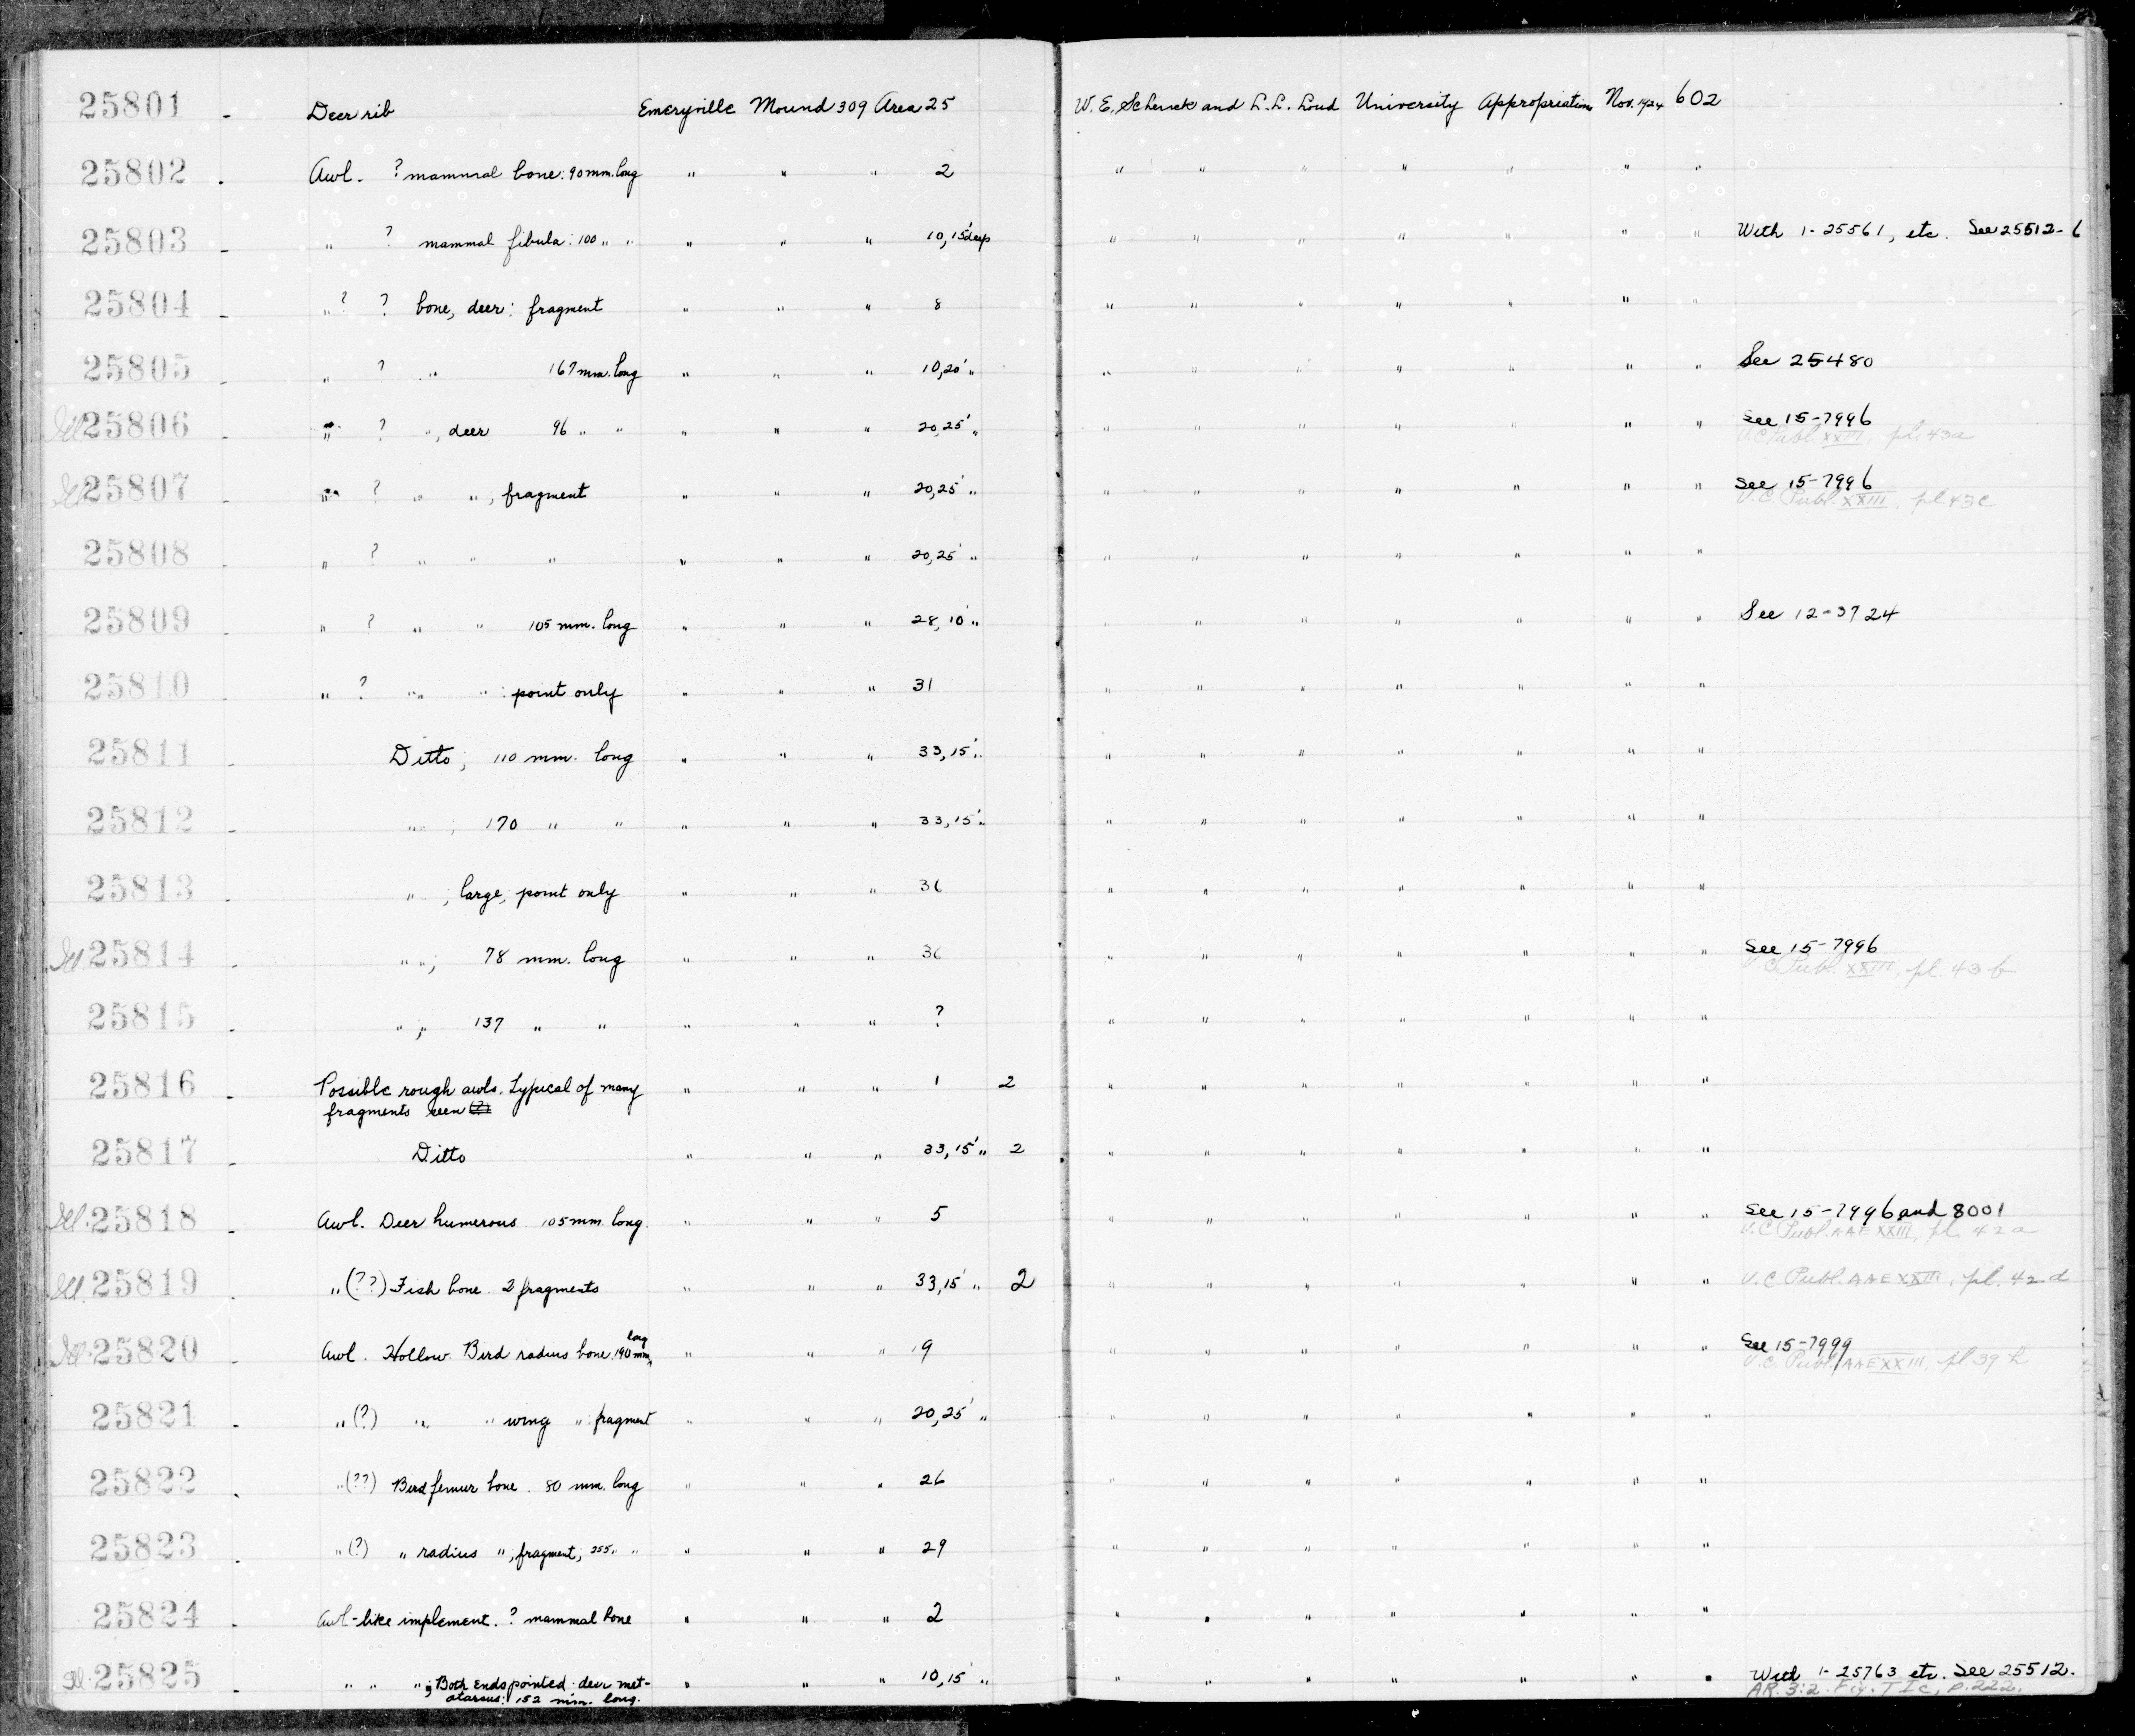 25801 - Deer rib Emeryville Mound 309 Area 25 W. E. Schenck and L. L. Loud University Appropriation Nov. 1924 602
25802 - Awl. ? mammal bone: 90 mm. long " " " 2 " " " " " " "
25803 - " ? mammal fibula: 100 " " " " " 10, 15' deep " " " " " " " With 1-25561, etc. See 25512-6
25804 - " ? ? bone, deer: fragment " " " 8 " " " " " " "
25805 - " ? " 167 mm. long " " " 10, 20' " " " " " " " " See 25480
Ill 25806 - " ? ", deer 96 " " " " " 20, 25' " " " " " " " " See 15-7996
U.C. Publ. XXIII, pl. 43a
Ill 25807 - " ? " ", fragment " " " 20, 25' " " " " " " " " See 15-7996
U.C. Publ. XXIII, pl 43c
25808 - " ? " " " " " " 20, 25' " " " " " " " "
25809 - " ? " " 105 mm. long " " " 28, 10' " " " " " " " " See 12-3724
25810 - " ? " " : point only " " " 31 " " " " " " "
25811 - Ditto; 110 mm. long " " " 33, 15' " " " " " " " "
25812 - " ; 170 " " " " " 33, 15' " " " " " " " "
25813 - " ; large, point only " " " 36 " " " " " " "
Ill 25814 - " "; 78 mm. long " " " 36 " " " " " " " See 15-7996
U.C. Publ. XXIII, pl. 43b
25815 - " ; 137 " " " " " ? " " " " " " "
25816 - Possible rough awls. Typical of many " " " 1 2 " " " " " " "
fragments seen
25817 - Ditto " " " 33, 15' " 2 " " " " " " "
Ill. 25818 - Awl. Deer humerous 105 mm. long. " " " 5 " " " " " " " See 15-7996 and 8001
U.C. Publ. AAE XXIII, pl. 42a
Ill. 25819 - " (??) Fish bone. 2 fragments " " " 33, 15' " 2 " " " " " " " U.C. Publ. AAE XXIII, pl. 42d
Ill. 25820 - Awl. Hollow. Bird radius bone. 190 mm. long " " " 9 " " " " " " " See 15-7999
U.C. Publ. AAE XXIII, pl 39h
25821 - " (?) " " wing " : fragment " " " 20, 25' " " " " " " " "
25822 - " (??) Bird femur bone. 80 mm. long " " " 26 " " " " " " "
25823 - " (?) " radius " ; fragment; 255 " " " " " 29 " " " " " " "
25824 - Awl-like implement. ? mammal bone " " " 2 " " " " " " "
Ill. 25825 - " " " ; Both ends pointed: deer met- " " " 10, 15' " " " " " " " " With 1-25763 etc. See 25512.
atarsus: 152 mm. long. AR. 3:2. Fig. TIc, p. 222.